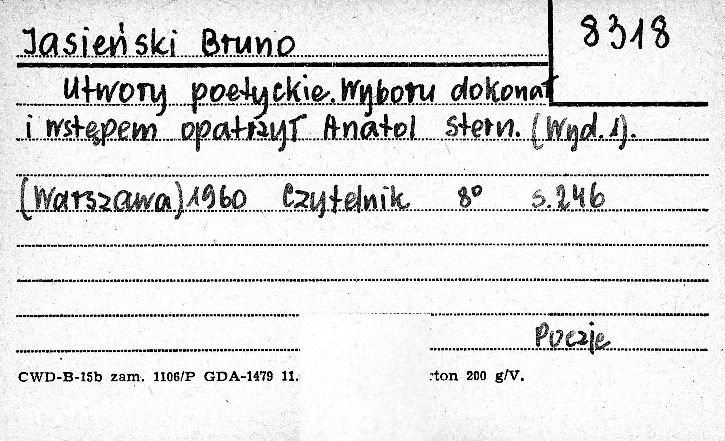 8318
Jasieński Bruno
Utwory poetyckie. Wyboru dokonał
i wstępem opatrzył Anatol Stern. (Wyd. 1).
(Warszawa) 1960 Czytelnik 8° s. 246
Poezje
CWD-B-15b zam. 1106/P GDA-1479 11. :ton 200 g/V.